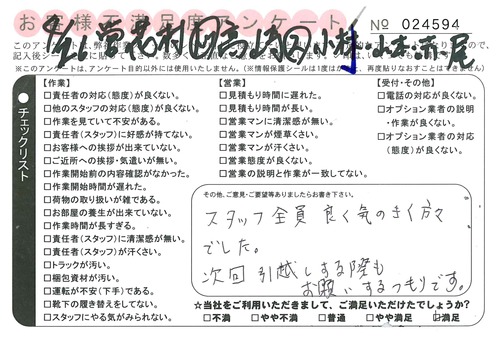 お客様不満足度アンケート
No 024594
※このアンケートは、アンケート目的以外には使用いたしません。(※情報保護シールは1度はがすと、再度貼りなおすことはできません)
チェックリスト
【作業】
□責任者の対応(態度)が良くない。
□他のスタッフの対応(態度)が良くない。
□作業を見ていて不安がある。
□責任者(スタッフ)に好感が持てない。
□お客様への挨拶が出来ていない。
□ご近所への挨拶・気遣いが無い。
□作業開始前の内容確認がなかった。
□作業開始時間が遅れた。
□荷物の取り扱いが雑である。
□お部屋の養生が出来ていない。
□作業時間が長すぎる。
□責任者(スタッフ)に清潔感が無い。
□責任者(スタッフ)が汗くさい。
□トラックが汚い。
□梱包資材が汚い。
□運転が不安(下手)である。
□靴下の履き替えをしてない。
□スタッフにやる気がみられない。
【営業】
□見積もり時間に遅れた。
□見積もり時間に長い。
□営業マンに清潔感が無い。
□営業マンが煙草くさい。
□営業マンが汗くさい。
□営業態度が良くない。
□営業の説明と作業が一致してない。
【受付・その他】
□電話の対応が良くない。
□オプション業者の説明・作業が良くない。
□オプション業者の対応(態度)が良くない。
その他、ご意見・ご要望等ありましたらお書き下さい。
スタッフ全員 良く気のきく方々
でした。
次回 引越しする際も
お願いするつもりです。
☆当社をご利用いただきまして、ご満足いただけたでしょうか?
□不満 □やや不満 □普通 □やや満足 □満足